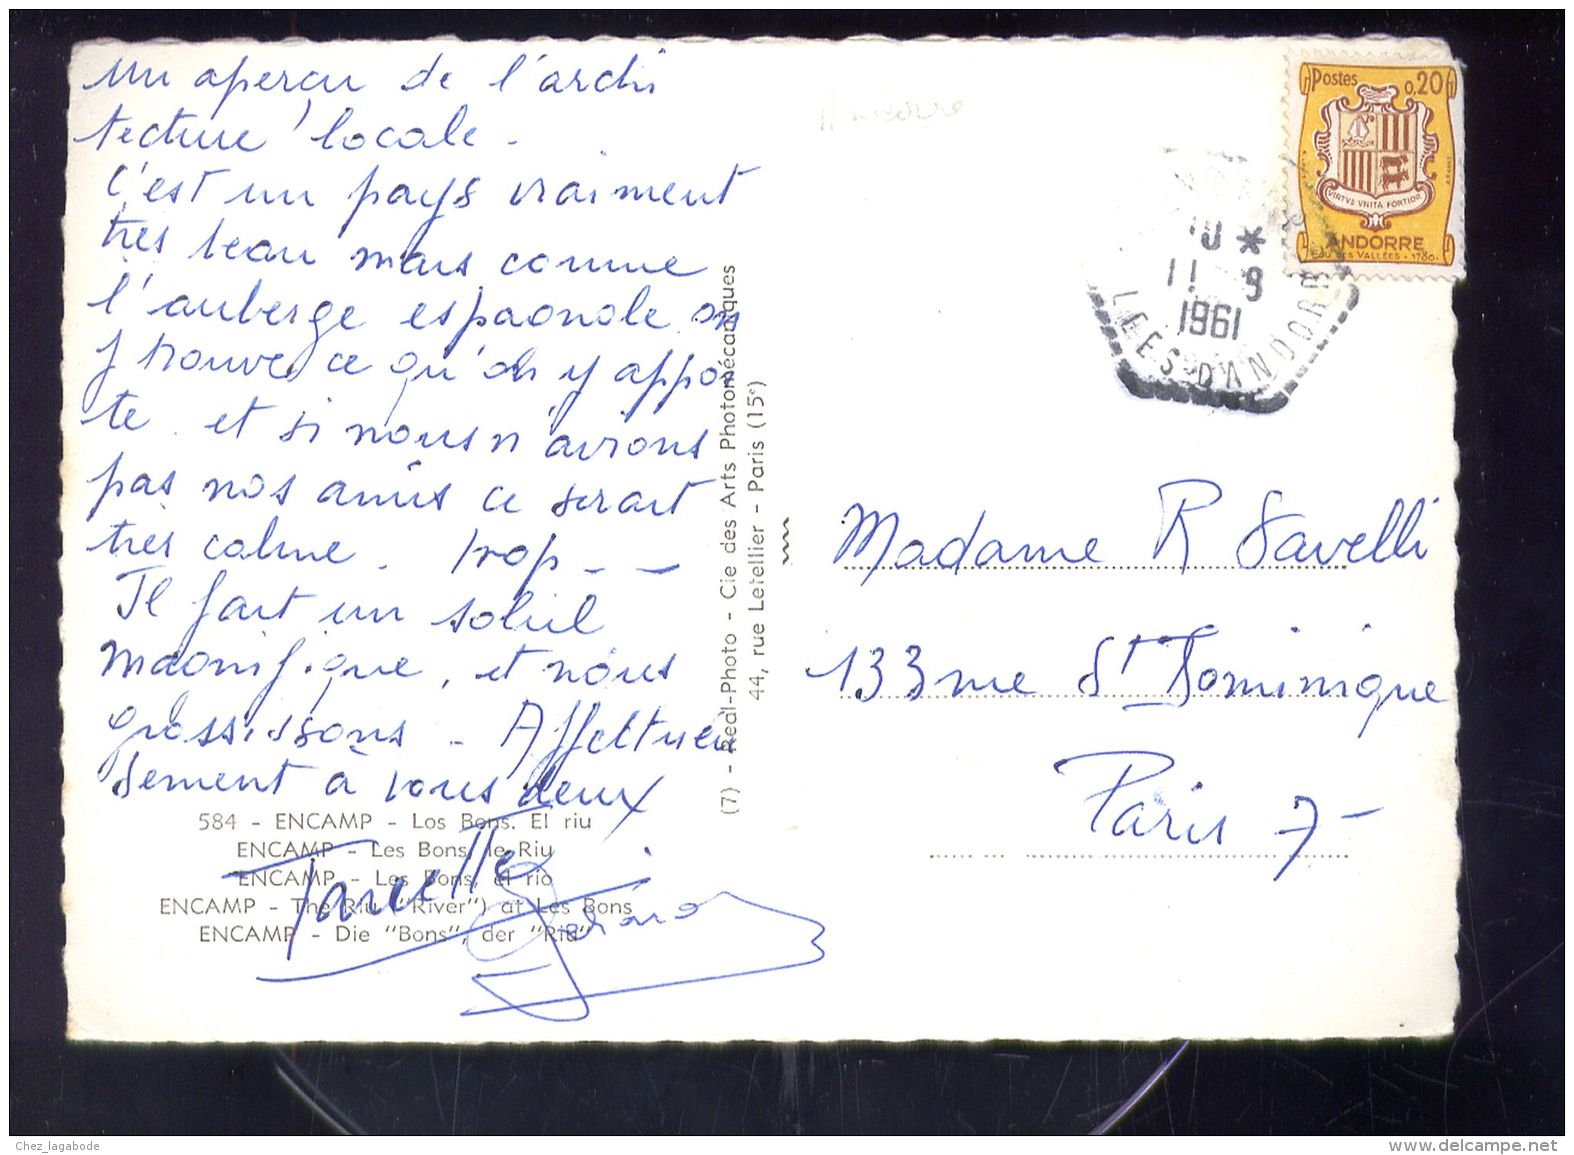 un aperçu de l'archi
tecture locale -
C'est un pays vraiment
très beau mais comme
l'auberge espagnole on
y trouve ce qu'on y appor
te et si nous n'avions
pas nos amis ce serait
très calme. trop - -
Il fait un soleil
magnifique, et nous
grossissons - Affectueu
sement à vous deux
584 - ENCAMP - Los Bons. El riu
ENCAMP - Les Bons, le Riu
ENCAMP - Les Bons, el rio
ENCAMP - The Riu ("River") at Les Bons
ENCAMP - Die "Bons", der "Riu"
(7) - Real-Photo - Cie des Arts Photomécaniques
44, rue Letellier - Paris (15e)
Andorre
Postes 0,20
VIRTVS VNITA FORTIOR
ANDORRE
EAU DES VALLÉES - 1780.
10 *
11 - 9
1961
D'ANDORRE
Madame R Savelli
133 rue St Dominique
Paris 7 -
Chez_lagabode
www.delcampe.net